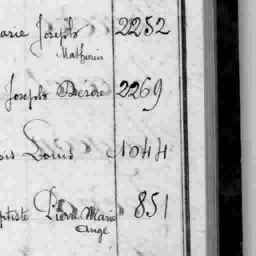 arie Joseph 2252
Mathurin
Joseph Désiré 2269
Louis 1044
ptiste Pierre Marie 851
Ange